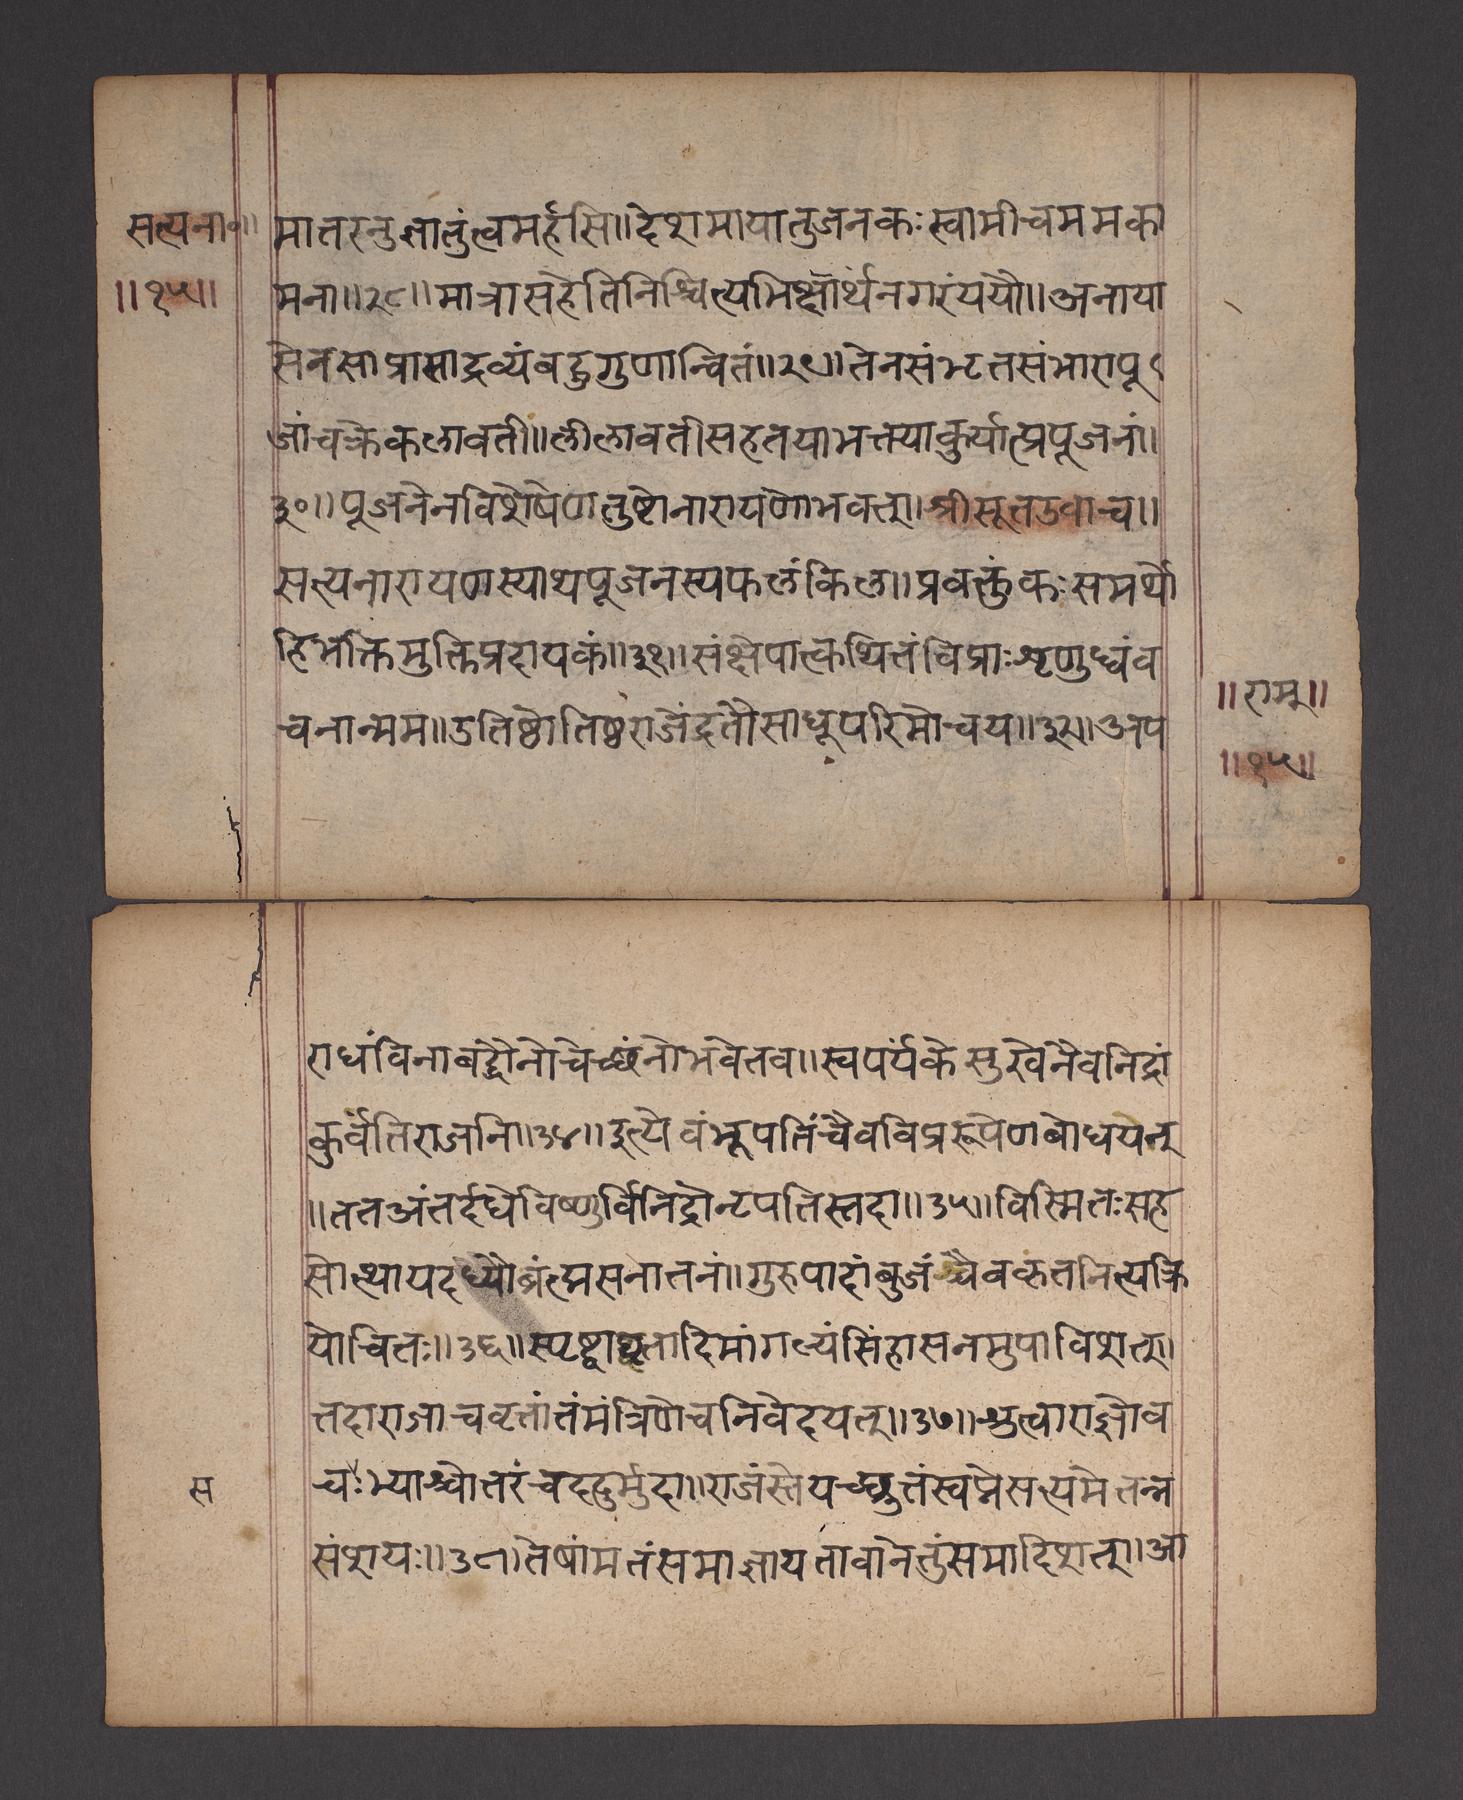 सत्यना॰॥
॥१५॥
मातरनुज्ञातुंत्वमर्हसि॥देशमायातुजनकःस्वामीचममका
मना॥२८॥मात्रासहेतिनिश्चित्यभिक्षार्थंनगरंययौ॥अनाया
सेनसाप्रासाद्रव्यंबहुगुणान्वितं॥२९॥तेनसंभृतसंभारापू
जांचक्रेकलावती॥लीलावतीसहतयाभक्तयाकुर्यात्प्रपूजनं॥
३०॥पूजनेनविशेषेणतुष्टोनारायणोभवत्॥श्रीसूतउवाच॥
सत्यनारायणस्याथपूजनस्यफलंकिल॥प्रवक्तुंकःसमर्थो
हिभक्तिमुक्तिप्रदायकं॥३१॥संक्षेपात्कथितंविप्राःशृणुध्वंव
चनान्मम॥उतिष्ठोतिष्ठराजेंद्रतौसाधूपरिमोचय॥३२॥अप
॥राम्॥
॥१५॥
राधंविनाबद्धौनोचेच्छंनोभवेतव॥स्वपर्यंकेसुखेनैवनिद्रां
कुर्वेतिराजनि॥३४॥इत्येवंभूपतिंचैवविप्ररूपेणबोधयेत्
॥ततअंतर्दधेविष्णुर्विनिद्रोनृपतिस्तदा॥३५॥विस्मितःसह
सोत्थायदध्यौब्रंत्मसनातनं॥गुरुपादांबुजंचैवकृतनित्यक्रि
योचितः॥३६॥स्पृष्ट्वाघृतादिमांगल्यंसिंहासनमुपाविशत्॥
तदाराजाचवृत्तांतंमंत्रिणेचनिवेदयत्॥३७॥श्रुत्वाराज्ञोव
स
चःभ्याश्चोतरंचददुर्मुदा॥राजंस्तेयच्छ्रुतंस्वप्नेसत्यमेतन्न
संशयः॥३८॥तेषांमतंसमाज्ञायतावानेतुंसमादिशत्॥आ